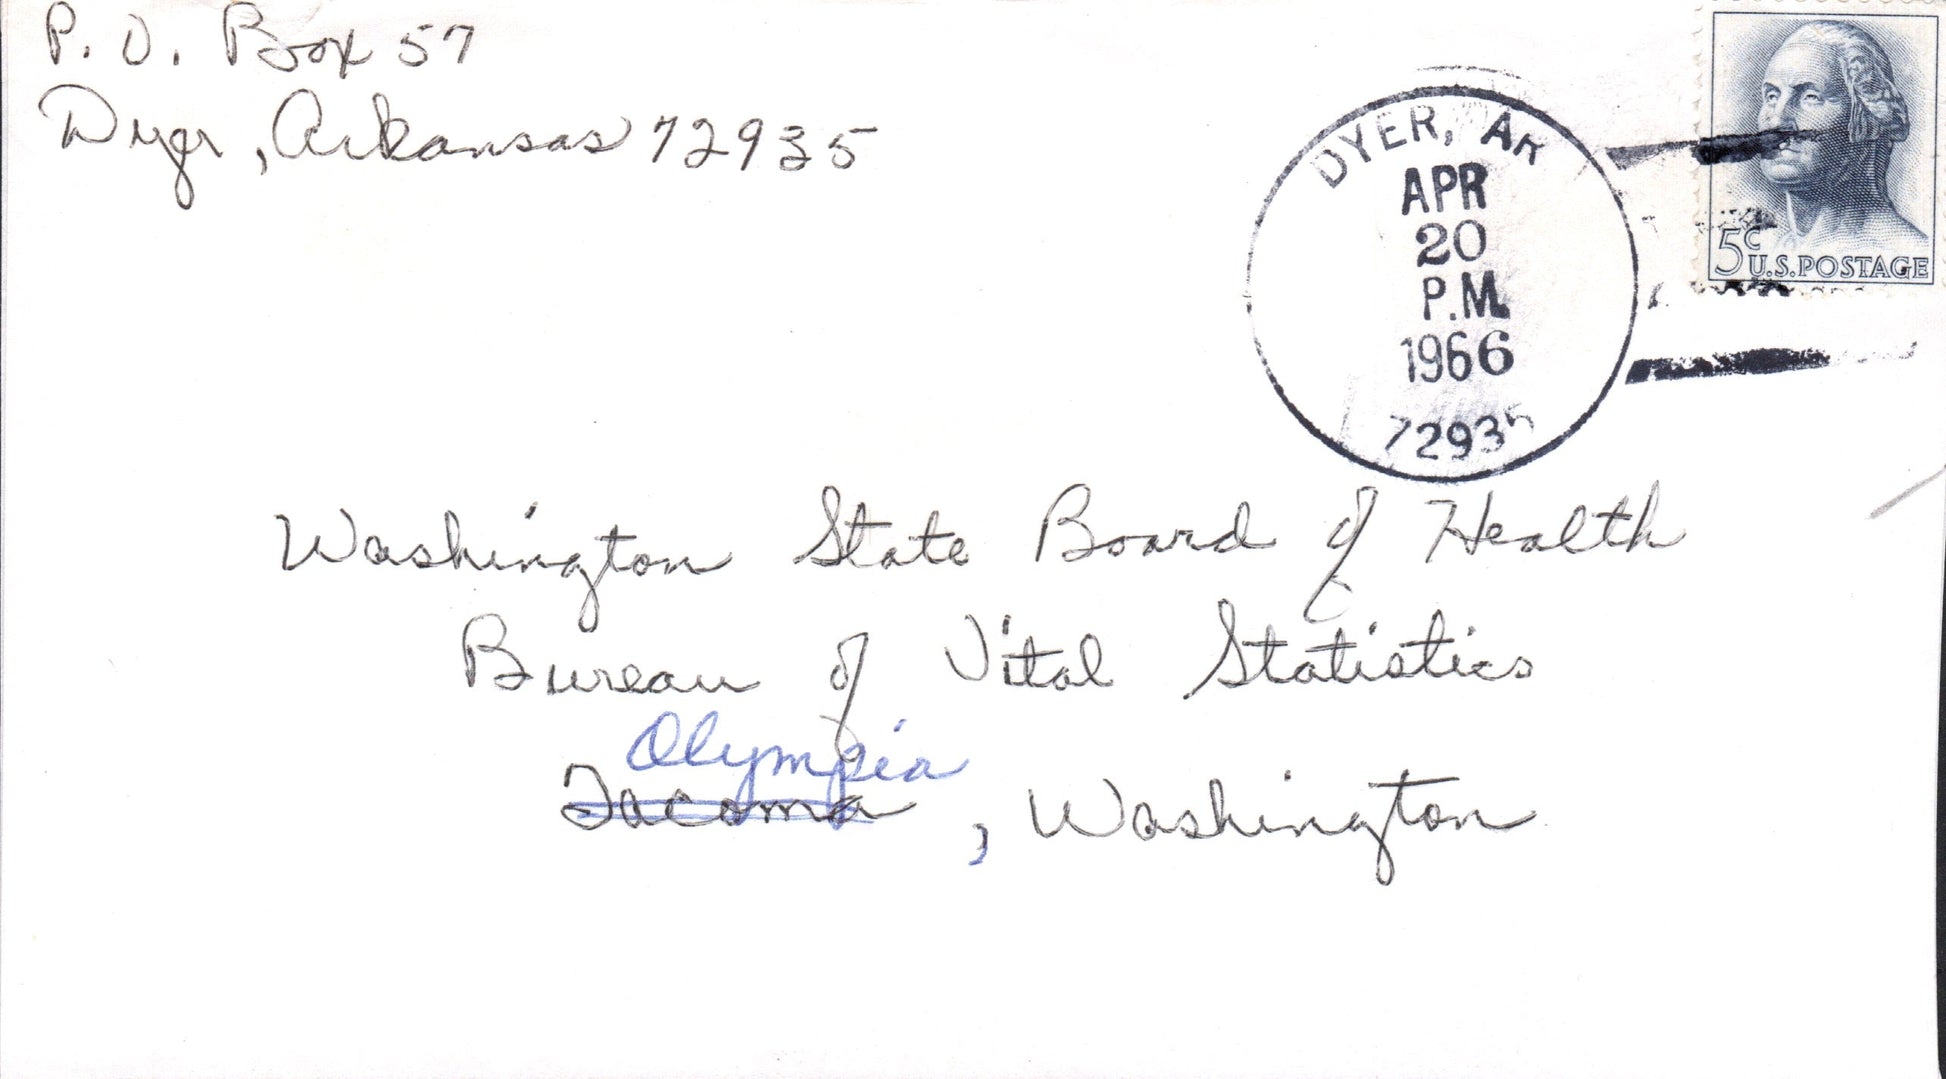 P. O. Box 57
Dyer, Arkansas 72935
DYER, AR
APR
20
P.M.
1966
72935
5c
U.S.POSTAGE
Washington State Board of Health
Bureau of Vital Statistics
Olympia
Tacoma, Washington